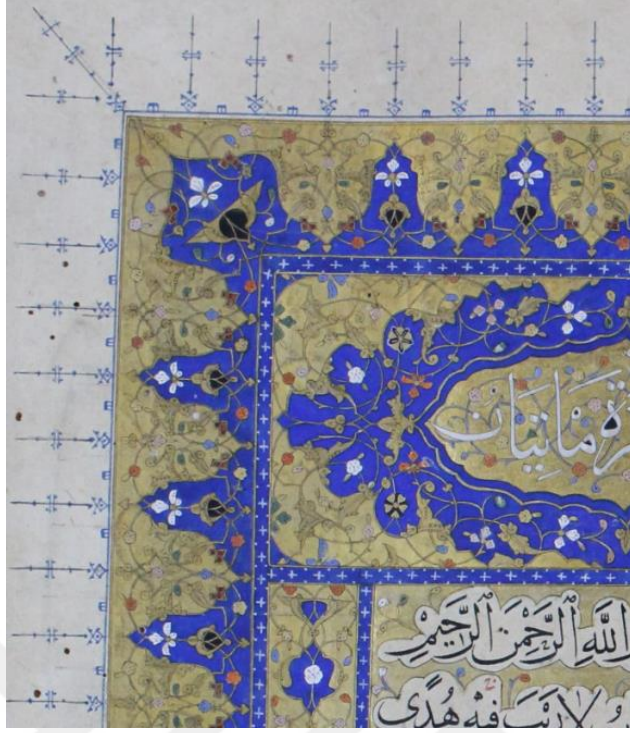 مانيان
اللَّهِ ٱلرَّحْمَنِ ٱلرَّحِيمِ
لَا رَيْبَ فِيهِ هُدًى